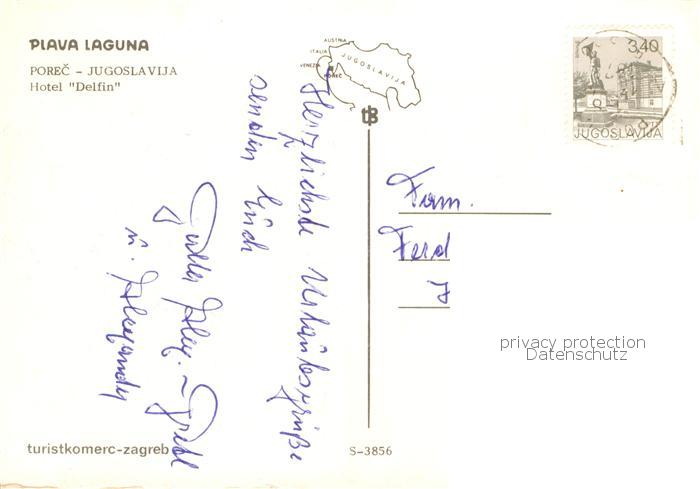 PLAVA LAGUNA
POREČ – JUGOSLAVIJA
Hotel "Delfin"
AUSTRIA
ITALIA
VENEZIA
POREČ
JUGOSLAVIJA
3,40
JUGOSLAVIJA
Herzlichste Urlaubsgrüße
senden Euch
Alex. Gretl
u. Alexander
Fam.
Ferd
privacy protection
Datenschutz
turistkomerc-zagreb
S-3856